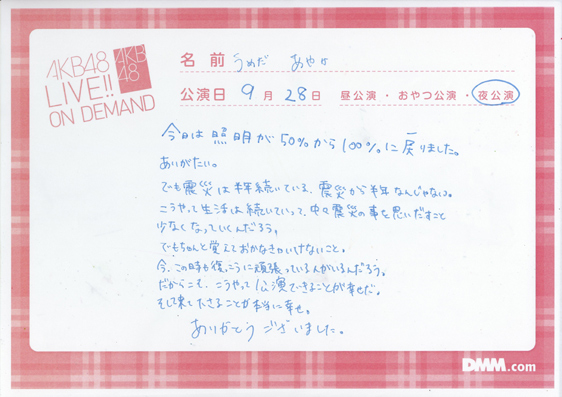 AKB48
LIVE!!
ON DEMAND
AKB
48
名前 うめだ あやか
公演日 9月28日 昼公演・おやつ公演・夜公演
今日は照明が50%から100%に戻りました。
ありがたい。
でも震災は半年続いている。震災から半年なんじゃない。
こうやって生活は続いていって、中々震災の事を思いだすこと
少なくなっていくんだろう。
でもちゃんと覚えておかなきゃいけないこと。
今、この時も復こうに頑張っている人がいるんだろう。
だからこそ、こうやって公演できることが幸せだ。
そして来て下さることが本当に幸せ。
ありがとうございました。
DMM.com